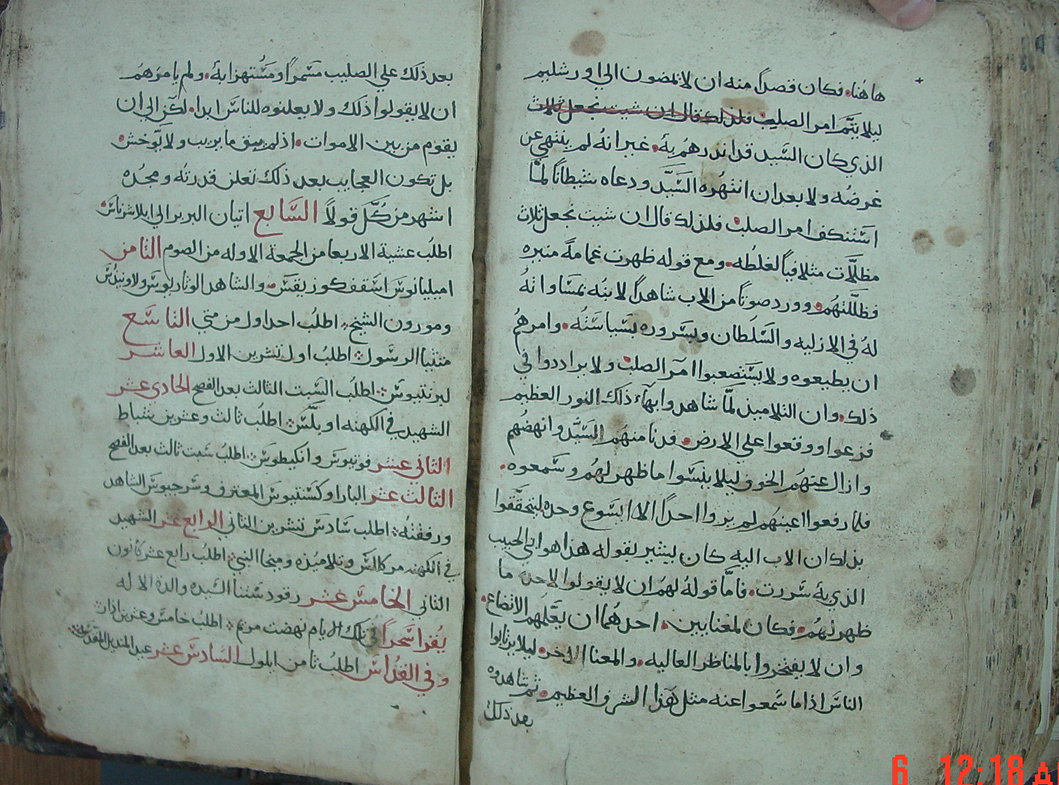 هاهنا. فكان قصداً منه ان لا تمضون الي اورشليم
ليلا يتم امر الصليب فلذلك قال ان شيت نجعل ثلاث
الذي كان السَّيد قد انذرهم به. غير انه لم ينتهي عن
غرضُه ولا بعد ان انتهره السَّيَّد ودعاه شيطاناً لمَّا
استنكف امر الصلب فلذلك قال ان شيت نجعل ثلاث
مظلَّات متلافياً لغلطُه. ومع قوله ظهرت غمامةً منيره
فظللتهُم. وورد صوتاً من الاب شاهداً لابنُه بمساواتهُ
لهُ في الازليه والسُّلطان وبسروره بسياستُه. وامرهُم
ان يطيعوه ولا يستصعبوا امر الصلب ولا يراددوا في
ذلك. وان التلاميذ لمَّا شاهدوا بهآء ذلك النور العظيم
فزعوا ووقعوا علي الارض. فدنا منهُم السَّيِّد وانهضهُم
وازال عنهُم الخوف ليلا ينسوا ما ظهر لهُم وسمعوه.
فلما رفعوا اعينهم لم يروا احداً الا ايسوع وحده ليتحققوا
بذلك ان الاب اليه كان يشير بقوله هذا هو ابني الحبيب
الذي به سُررت. فامَّا قوله لهُم ان لا يقولوا لاحد ما
ظهر لهُم. فكان لمعنايين. احدهُما ان يعلمهُم الاتضاع
وان لا يفتخروا بالمناظر العاليه. والمعنا الاخر. ليلا يرتابوا
الناس اذا ما سمعوا عنه مثل هذا الشرف العظيم. ثم شاهدوه
بعد ذلك
بعد ذلك علي الصليب مسمراً ومُستهزا به. ولم يامرهُم
ان لا يقولوا ذلك ولا يعلنوه للناس ابدا. لكن الي ان
يقوم من بين الاموات. اذ لم يبق ما يريب ولا يوخش
بل تكون العجايب بعد ذلك تعلن قدرته ومجده
اشهر من كُل قولاً السَّابع اتيان البربر الي ايلاثرياس
اطلب عشية الاربعا من الجمعة الاوله من الصوم الثامن
اميليانوس اسقف كوزيقس. والشاهد اوثاريوس ولاونيدس
ومورون الشيخ. اطلب احد اول من متي التاسع
متثيا الرسول. اطلب اول تشرين الاول العاشر
لبرنتيوس. اطلب السبت الثالث بعد الفصح الحادي عشر
الشهيد في الكهنه اوبلَّس. اطلب ثالث وعشرين شباط
الثاني عشر فوتيوس وانكيطوس. اطلب سبت ثالث بعد الفصح
الثالث عشر البار اوكستيوس المعترف وسرجيوس الشاهد
ورفقته. اطلب سادس تشرين الثاني الرابع عشر الشهيد
في الكهنه مركالس وتلاميذه وميخا النبي. اطلب رابع عشر كانون
الثاني الخامس عشر رقود ستنا السَّيده والدة الاله
يقرا سَحراً في تلك الايام نهضت مريم. اطلب خامس وعشرين اذار
وفي القداس اطلب ثامن ايلول السادس عشر عيد المنديل المقدس
6 12:16